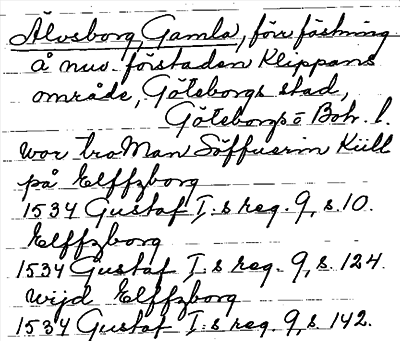 Älvsborg, Gamla, förr fästning
å nuv. förstaden Klippans
område, Göteborgs stad,
Göteborgs o Boh. l.
Wor tro Man Söffuerin Kiill
på Elffzborg
1534 Gustaf I:s reg. 9, s. 10.
Elffzborg
1534 Gustaf I:s reg. 9, s. 124.
wijd Elffzborg
1534 Gustaf I:s reg. 9, s. 142.